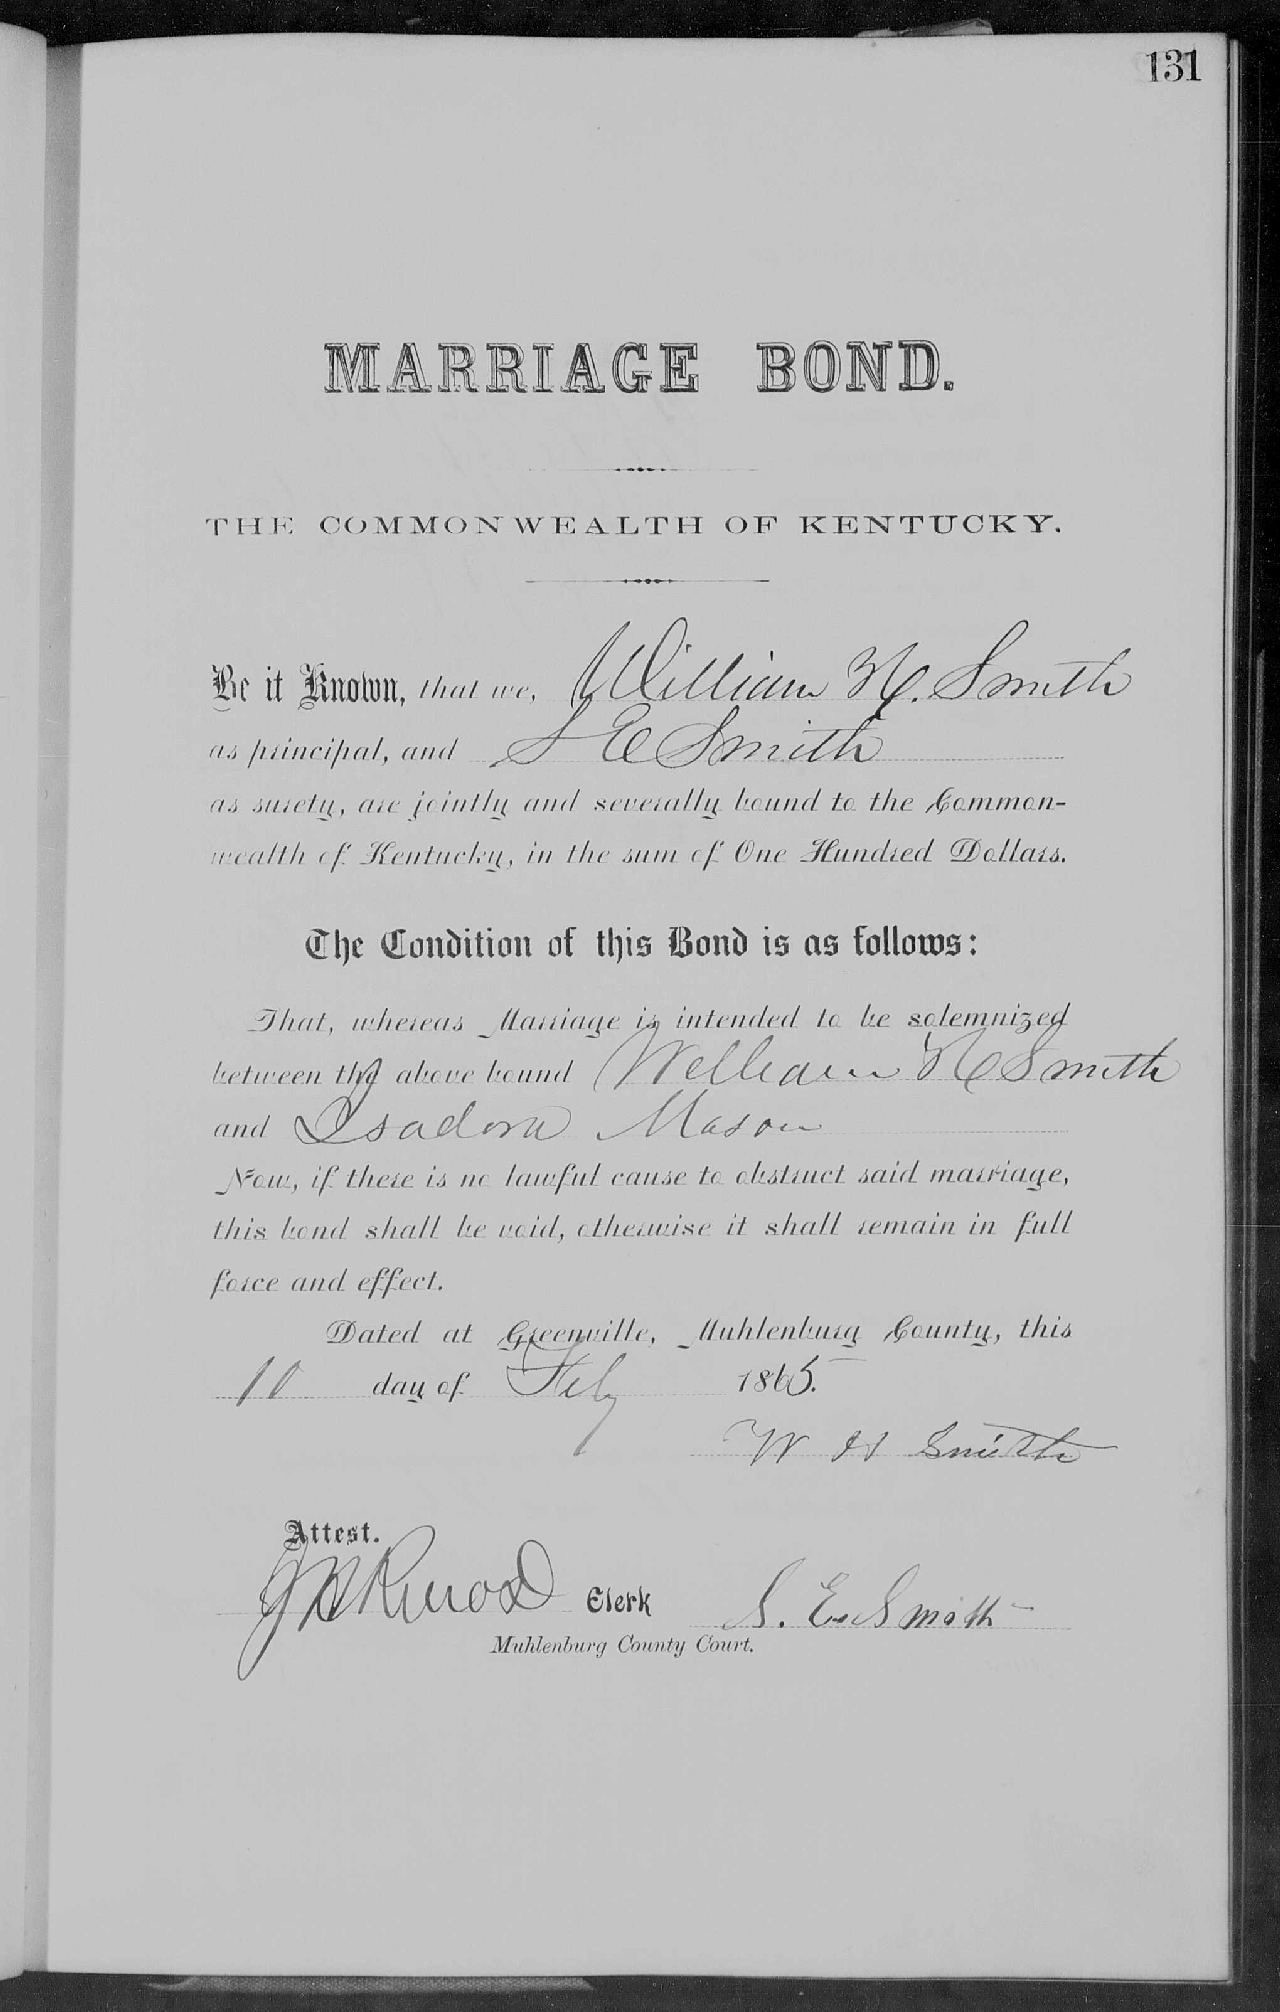 131
MARRIAGE BOND.
THE COMMONWEALTH OF KENTUCKY.
Be it Known, that we, William H. Smith
as principal, and S E Smith
as surety, are jointly and severally bound to the Common-
wealth of Kentucky, in the sum of One Hundred Dollars.
The Condition of this Bond is as follows:
That, whereas Marriage is intended to be solemnized
between the above bound William H Smith
and Isadora Mason
Now, if there is no lawful cause to obstruct said marriage,
this bond shall be void, otherwise it shall remain in full
force and effect.
Dated at Greenville, Muhlenburg County, this
10 day of Feby 1865.
W H Smith
Attest.
Clerk S. E. Smith
Muhlenburg County Court.